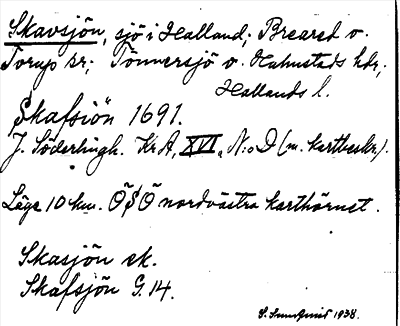 Skavsjön, sjö i Halland; Breared o.
Torup sr; Tönnersjö o. Halmstads hdr,
Hallands l.
Skafsiön 1691.
J. Söderlingh. KrA, XVI, N:o D (m. kartbeskr.).
Läge 10 km. ÖSÖ nordvästra karthörnet.
Skasjön ek.
Skafsjön G. 14.
S. 1938.